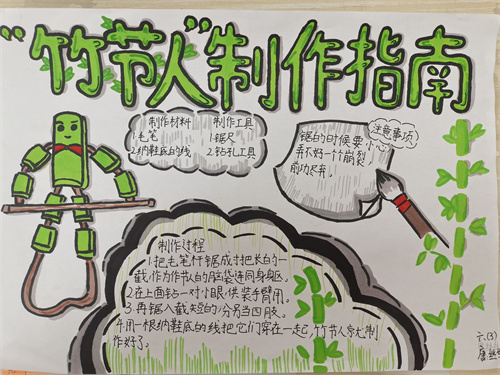 “竹节人”制作指南
制作材料
1.毛笔
2.纳鞋底的线
制作工具
1.锯尺
2.钻孔工具
注意事项
锯的时候要小心,
弄不好一个崩裂,
前功尽弃。
制作过程
1.把毛笔杆锯成寸把长的一
截,作为竹节的脑袋连同身躯。
2.在上面钻一对小眼,供装手臂用。
3.再锯八截短的,分别当四肢。
4.用一根纳鞋底的线把它们穿在一起,竹节人就制
作好了。
六.(3)